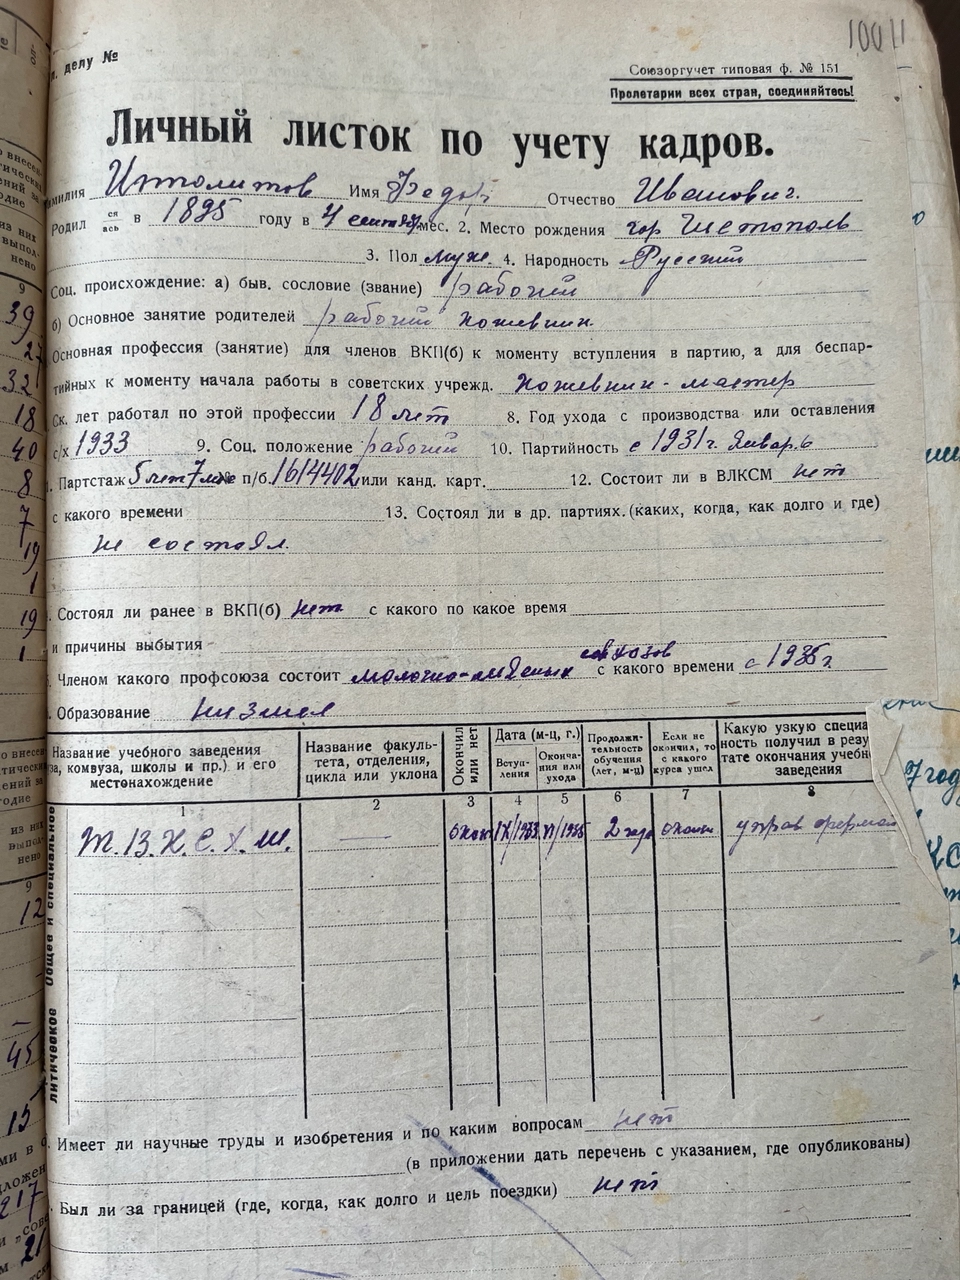 100 11
л. делу №
Союзоргучет типовая ф. № 151
Пролетарии всех стран, соединяйтесь!
Личный листок по учету кадров.
милия Ипполитов Имя Федор Отчество Иванович.
Родил ся ась в 1895 году в 4 сентяб. мес. 2. Место рождения гор Чистополь
3. Пол муж. 4. Народность Русский
Соц. происхождение: а) быв. сословие (звание) рабочий
б) Основное занятие родителей рабочий кожевник.
Основная профессия (занятие) для членов ВКП(б) к моменту вступления в партию, а для беспар-
тийных к моменту начала работы в советских учрежд. кожевник - мастер
Ск. лет работал по этой профессии 18 лет 8. Год ухода с производства или оставления
с/х 1933 9. Соц. положение рабочий 10. Партийность с 1931 г. Январь
. Партстаж 5 лет 7 м № п/б. 1614402 или канд. карт. 12. Состоит ли в ВЛКСМ нет
с какого времени 13. Состоял ли в др. партиях. (каких, когда, как долго и где)
не состоял.
. Состоял ли ранее в ВКП(б) нет с какого по какое время
и причины выбытия
. Членом какого профсоюза состоит молочно-мясных совхозов с какого времени с 1935 г.
. Образование низшее
Название учебного заведения
за, комвуза, школы и пр.) и его
местонахождение
Название факуль-
тета, отделения,
цикла или уклона
Окончил
или нет
Дата (м-ц, г.)
Вступ-
ления
Оконча-
ния или
ухода
Продолжи-
тельность
обучения
(лет, м-ц)
Если не
окончил, то
с какого
курса ушел
Какую узкую специа
ность получил в резу
тате окончания учебн
заведения
1 2 3 4 5 6 7 8
Т. В. К. С. Х. Ш. — окон IX/1933 VI/1935 2 года окончил управ фермой
литическое Общее и специальное
. Имеет ли научные труды и изобретения и по каким вопросам нет
(в приложении дать перечень с указанием, где опубликованы)
. Был ли за границей (где, когда, как долго и цель поездки) нет